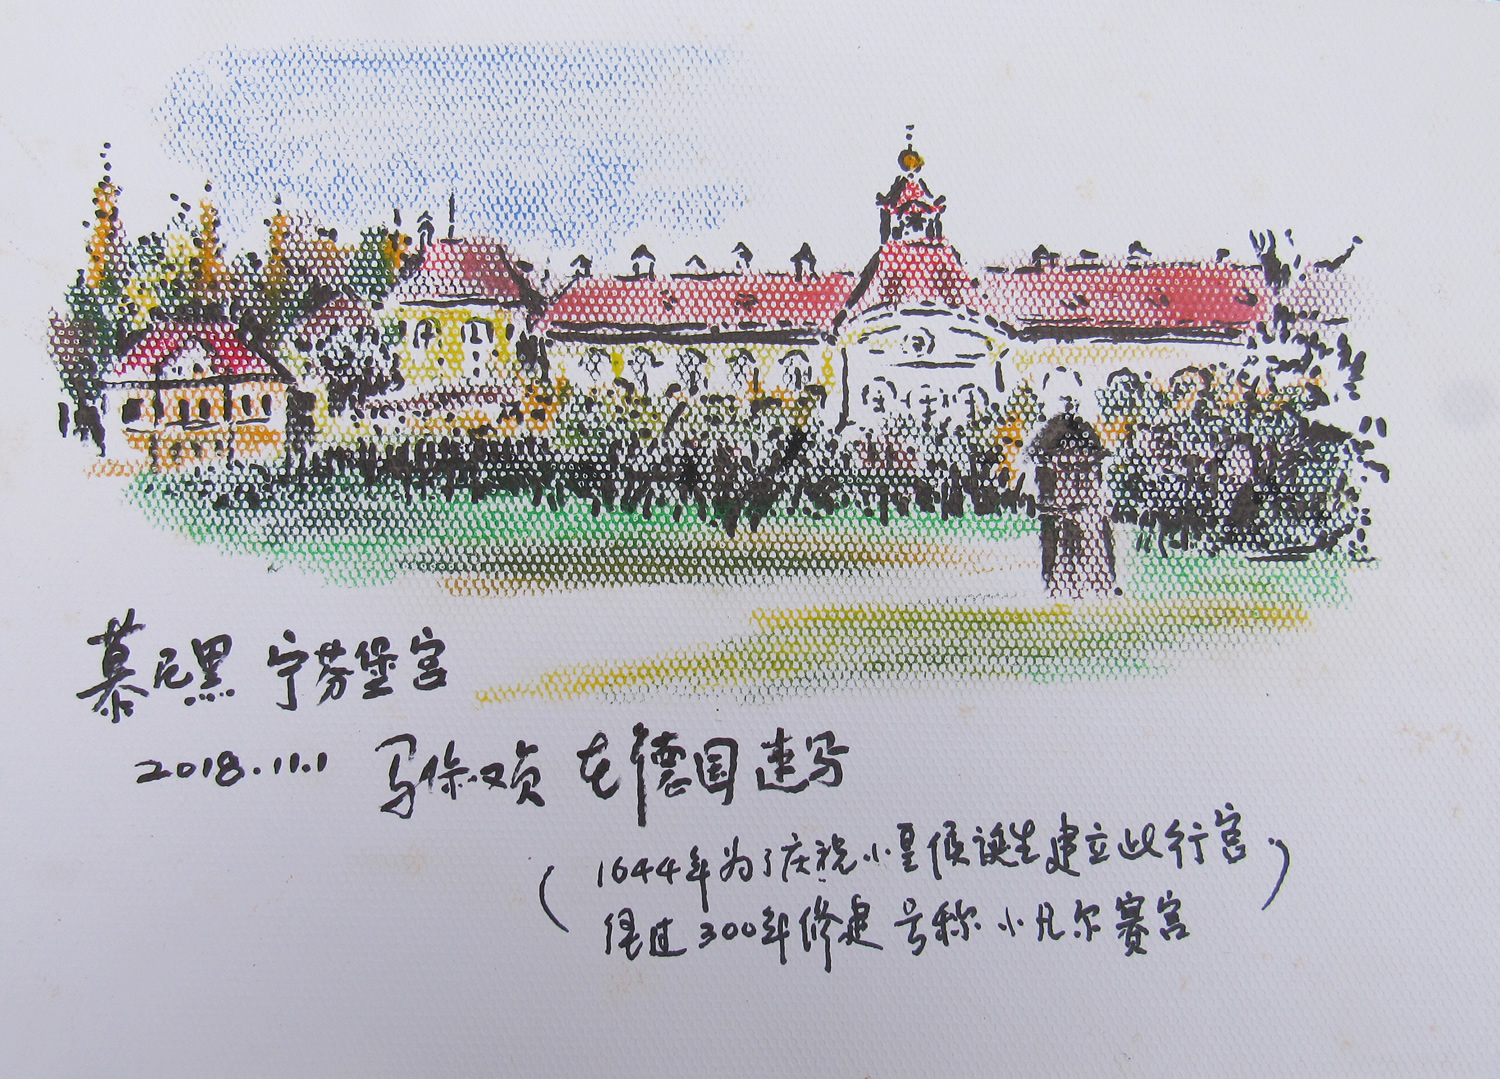 慕尼黑 宁芬堡宫
2018.11.1 马 在德国速写
(1644年为了庆祝小皇侯诞生建立此行宫.)
经过300年修建 号称小凡尔赛宫